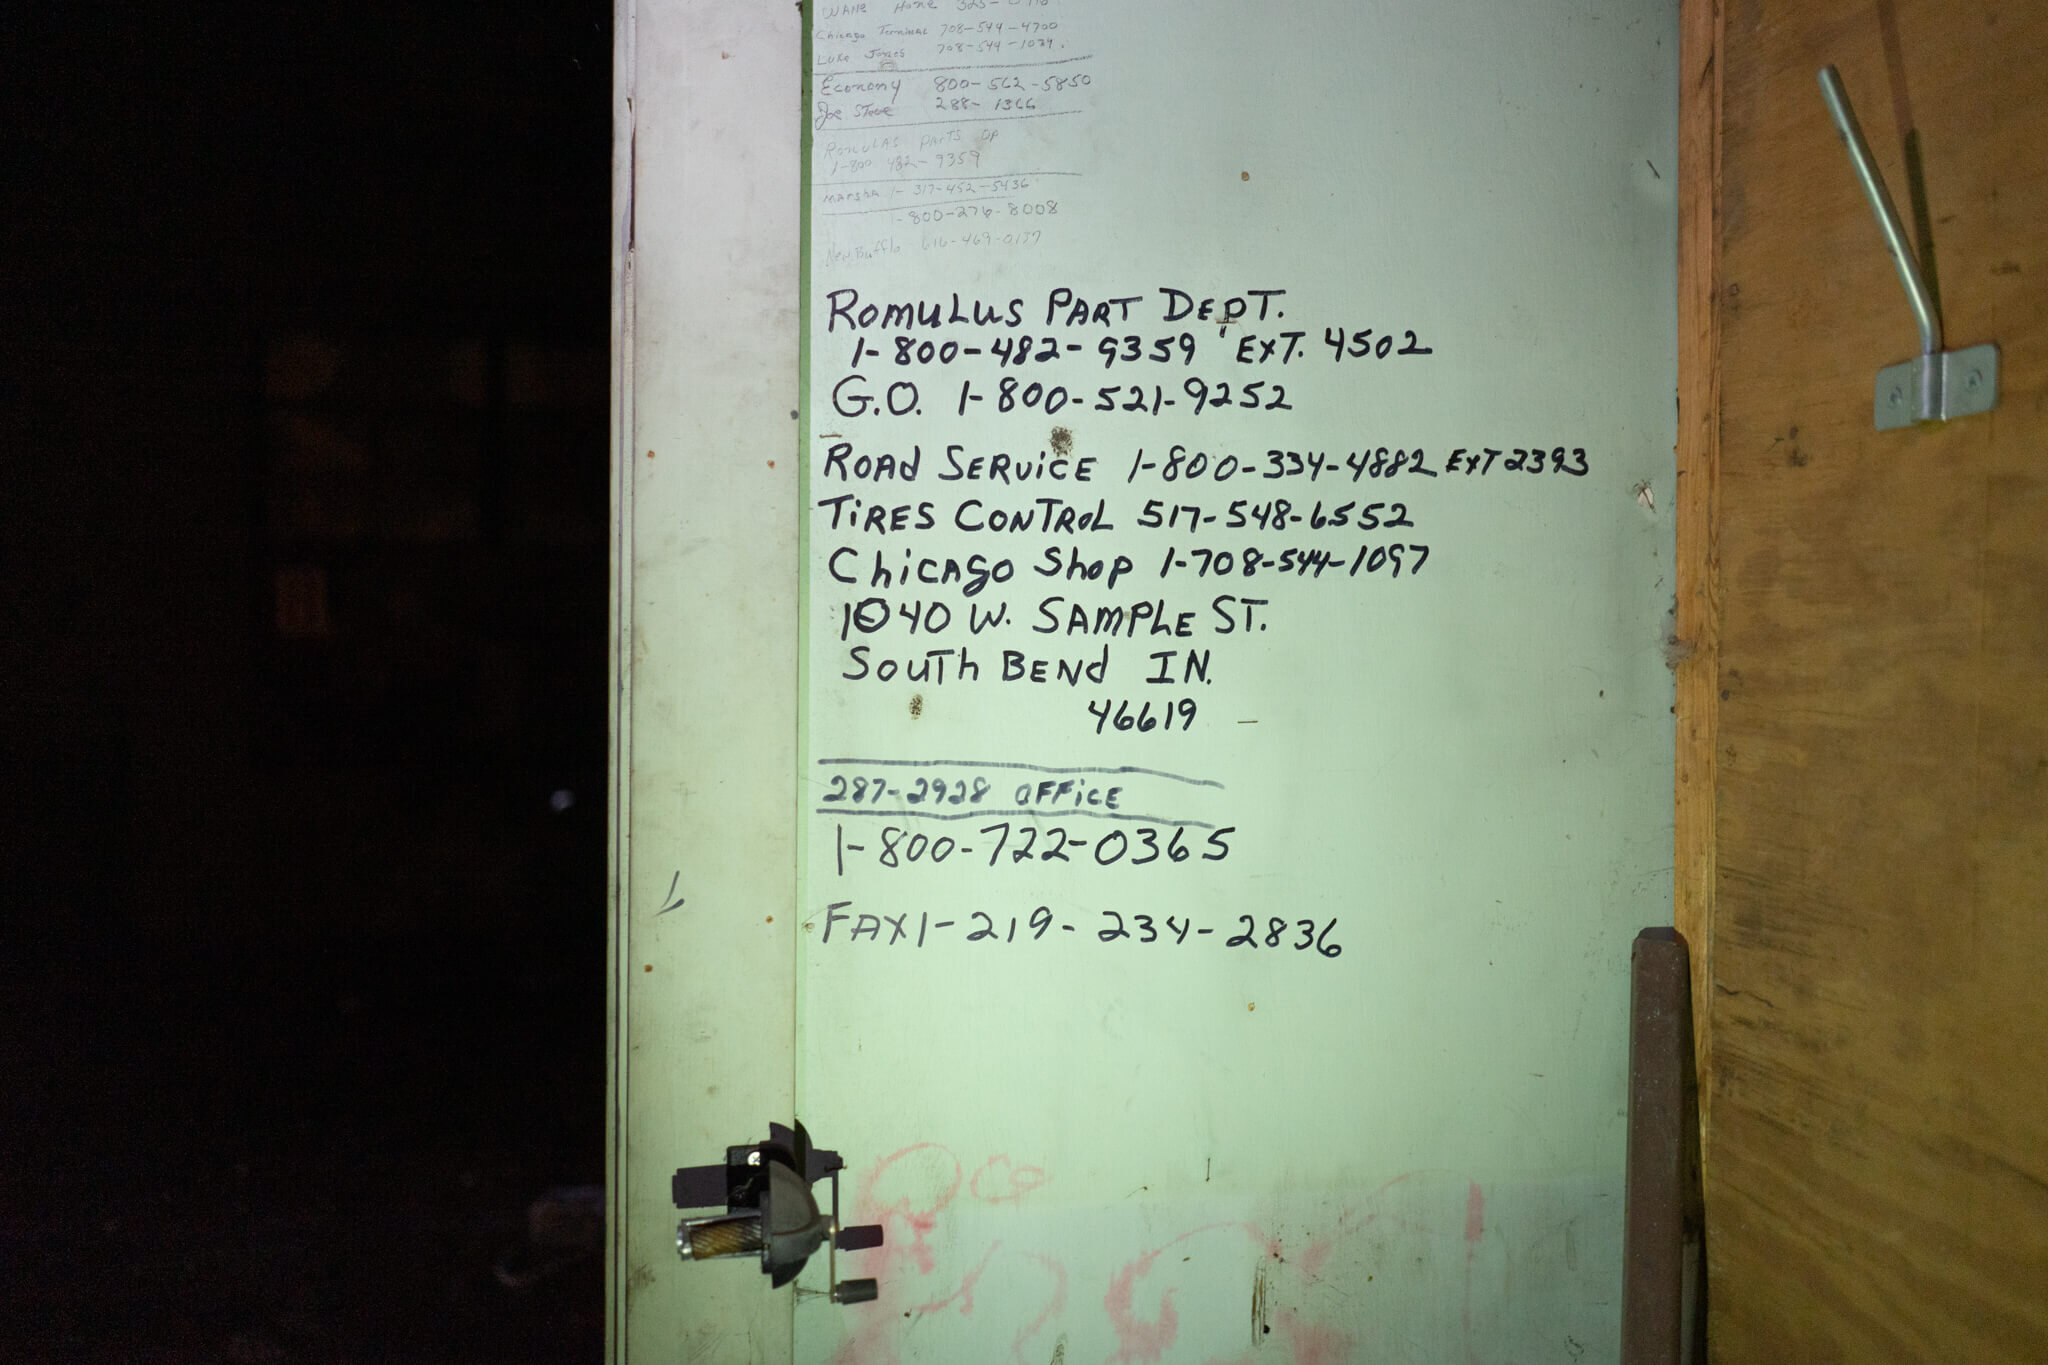 Chicago Terminal 708-544-4700
Luke Jones 708-544-1034
Economy 800-562-5850
Joe Steve 288-1366
ROMULAS PARTS DP
1-800 482-9359
MARSHA 1-317-452-5436
1-800-276-8008
New Bufflo 616-469-0137
ROMULUS PART DEPT.
1-800-482-9359 EXT. 4502
G.O. 1-800-521-9252
ROAd SERViCE 1-800-334-4882 EXT 2393
TiRES CONTROL 517-548-6552
ChiCAgO Shop 1-708-544-1097
1040 W. SAMPLE ST.
SOUTh BENd IN.
46619
287-2928 OFFiCE
1-800-722-0365
FAX 1-219-234-2836